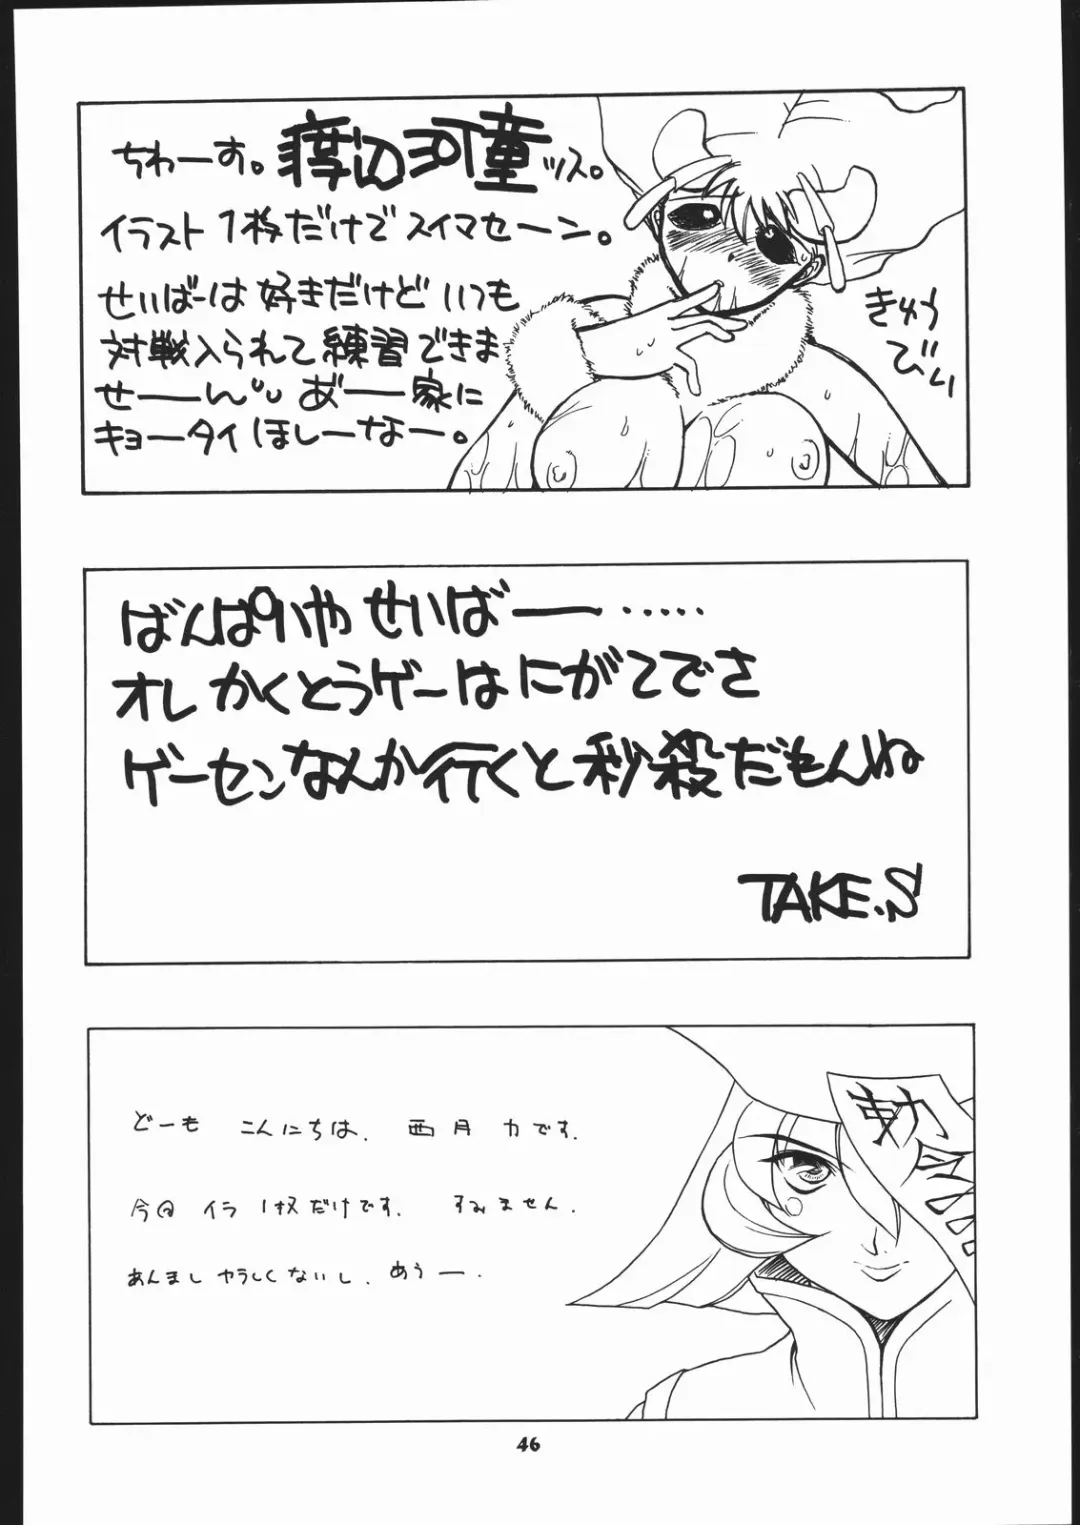 ちわーす。渡辺河童ッス。
イラスト1枚だけでスイマセーン。
せいばーは好きだけどいつも
対戦入られて練習できま
せーーん。あ゛ー家に
キョータイほしーなー。
きゅう
びぃ
ばんぱいや せいばー……
オレ かくとうゲーはにがてでさ
ゲーセンなんか行くと秒殺だもんね
TAKE.S
どーも こんにちは、西月力です。
今回 イラ1枚だけです。 すみません。
あんまし ヤラしくないし、 あうー。
勅
46